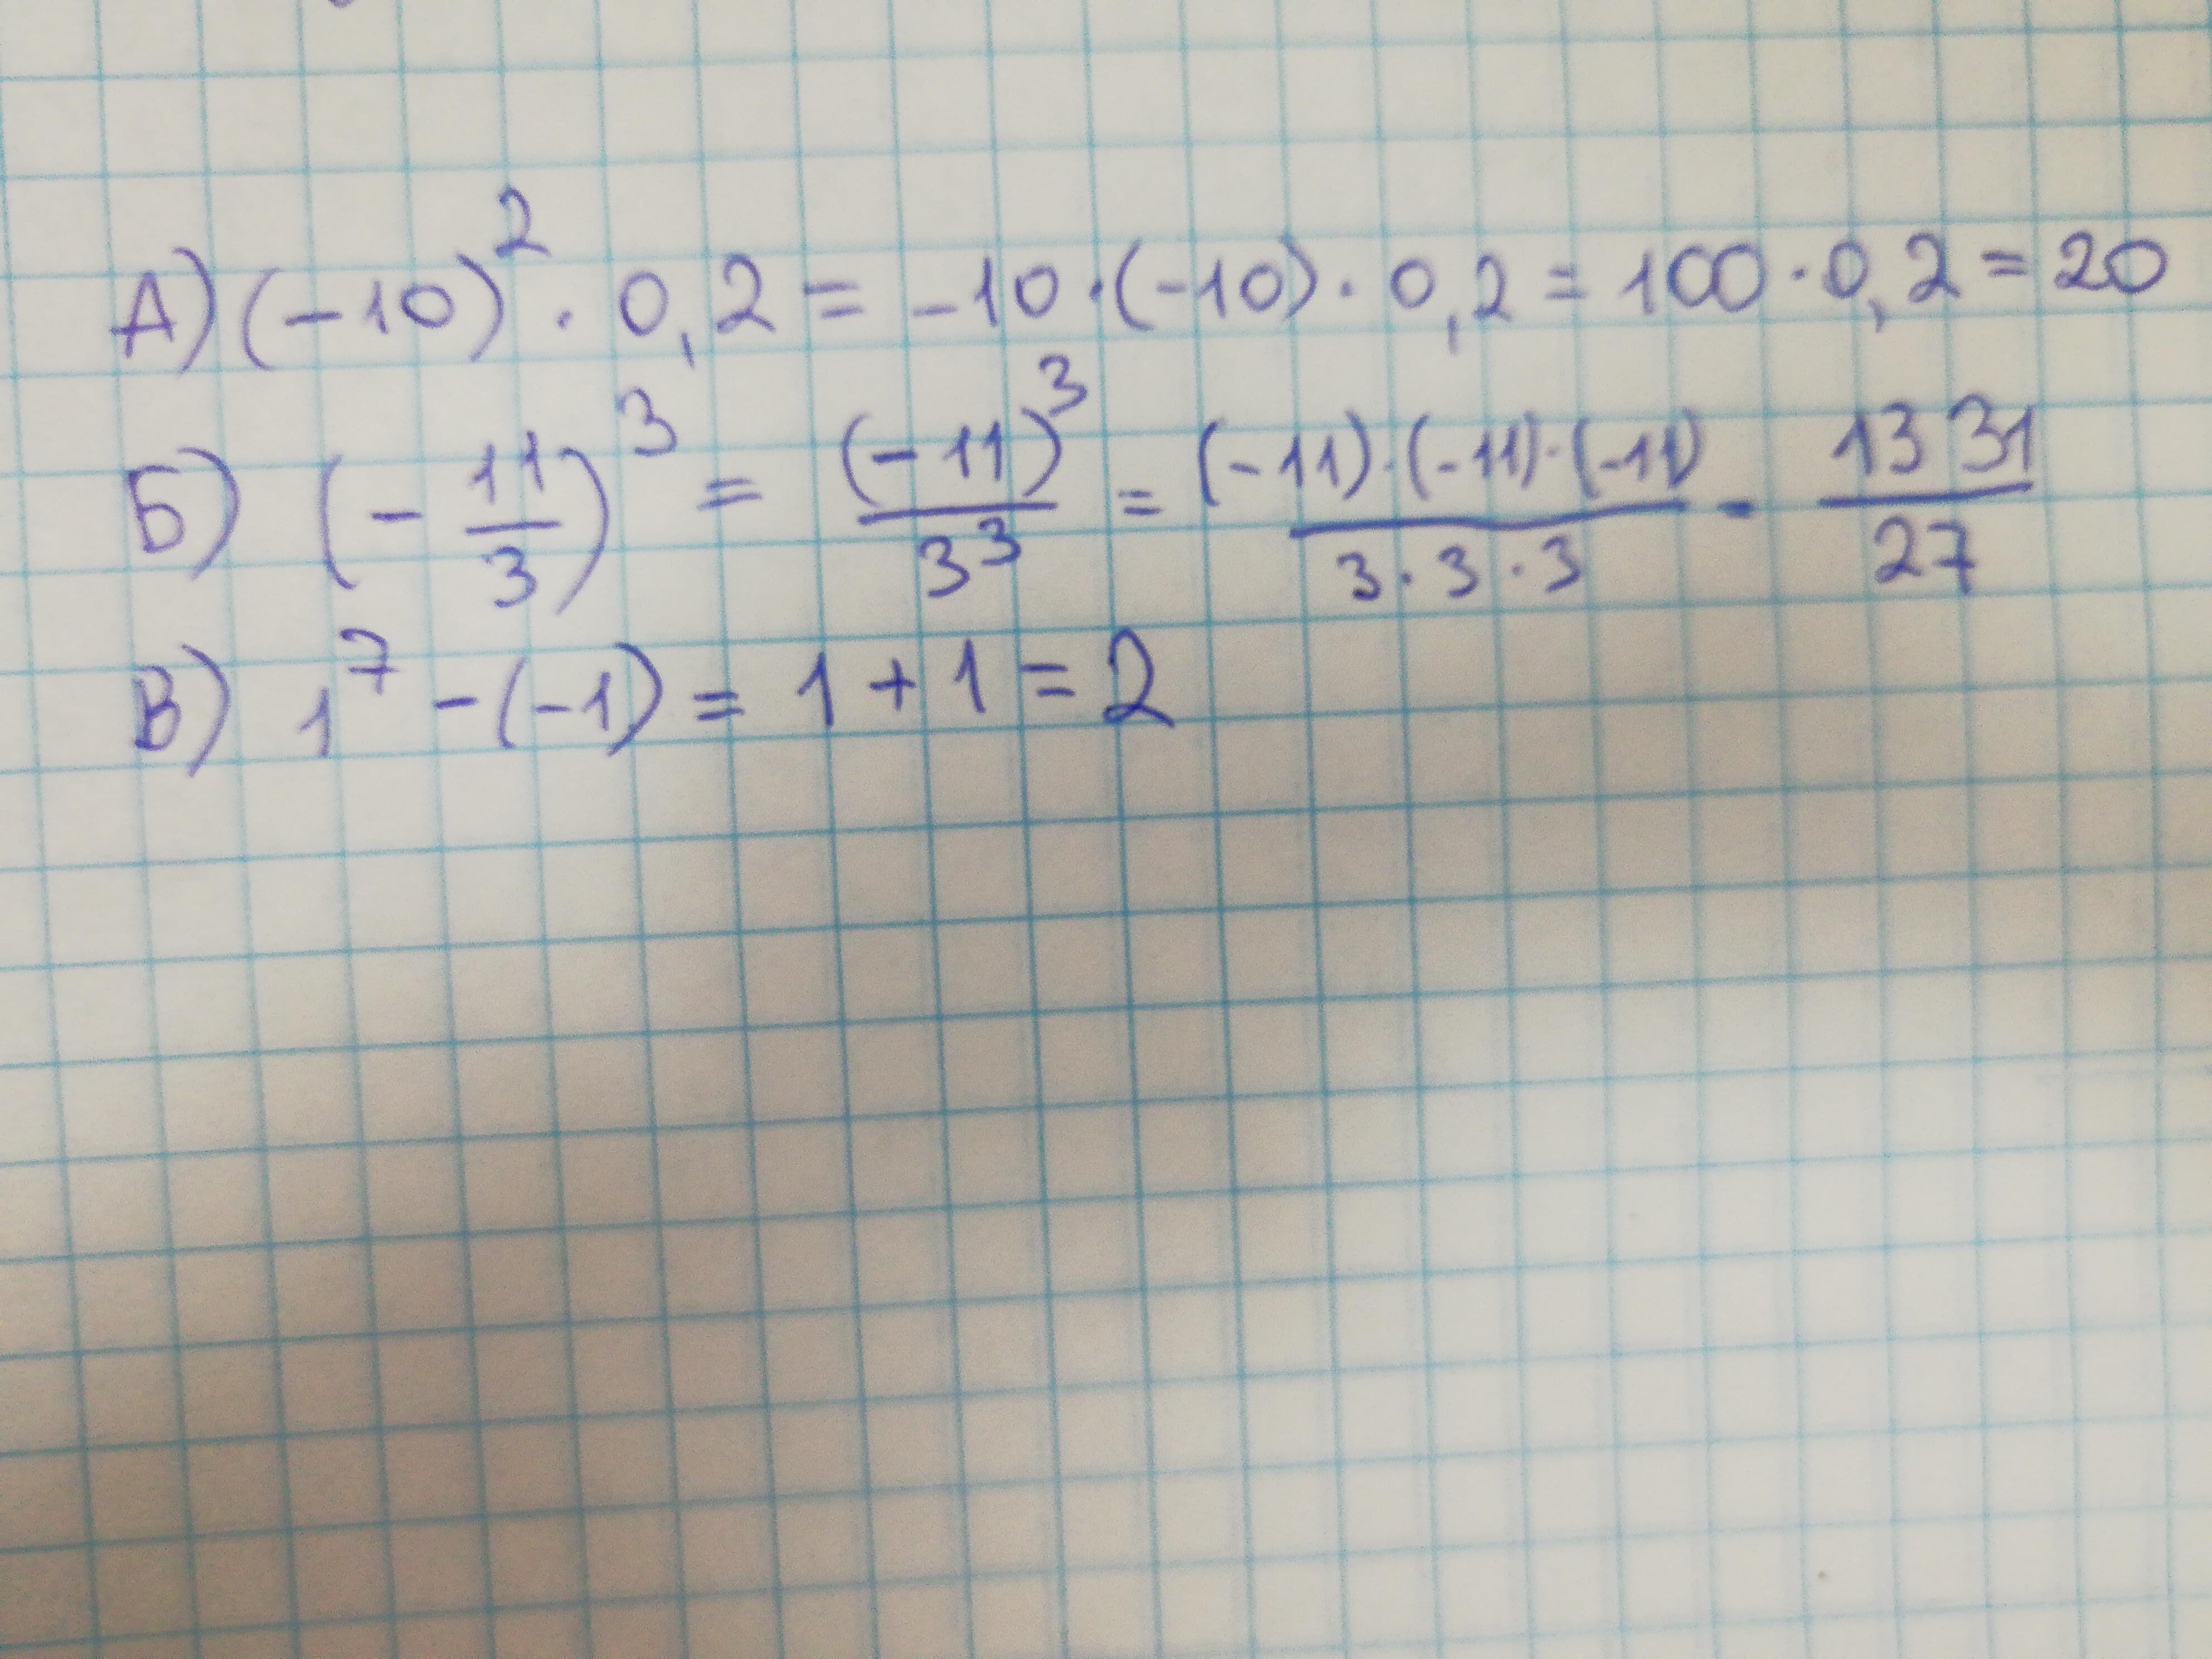 А) (-10)² · 0,2 = -10 · (-10) · 0,2 = 100 · 0,2 = 20
Б) (- 11/3)³ = (-11)³/3³ = (-11)·(-11)·(-11)/3·3·3 - 1331/27
В) 1⁷ - (-1) = 1 + 1 = 2